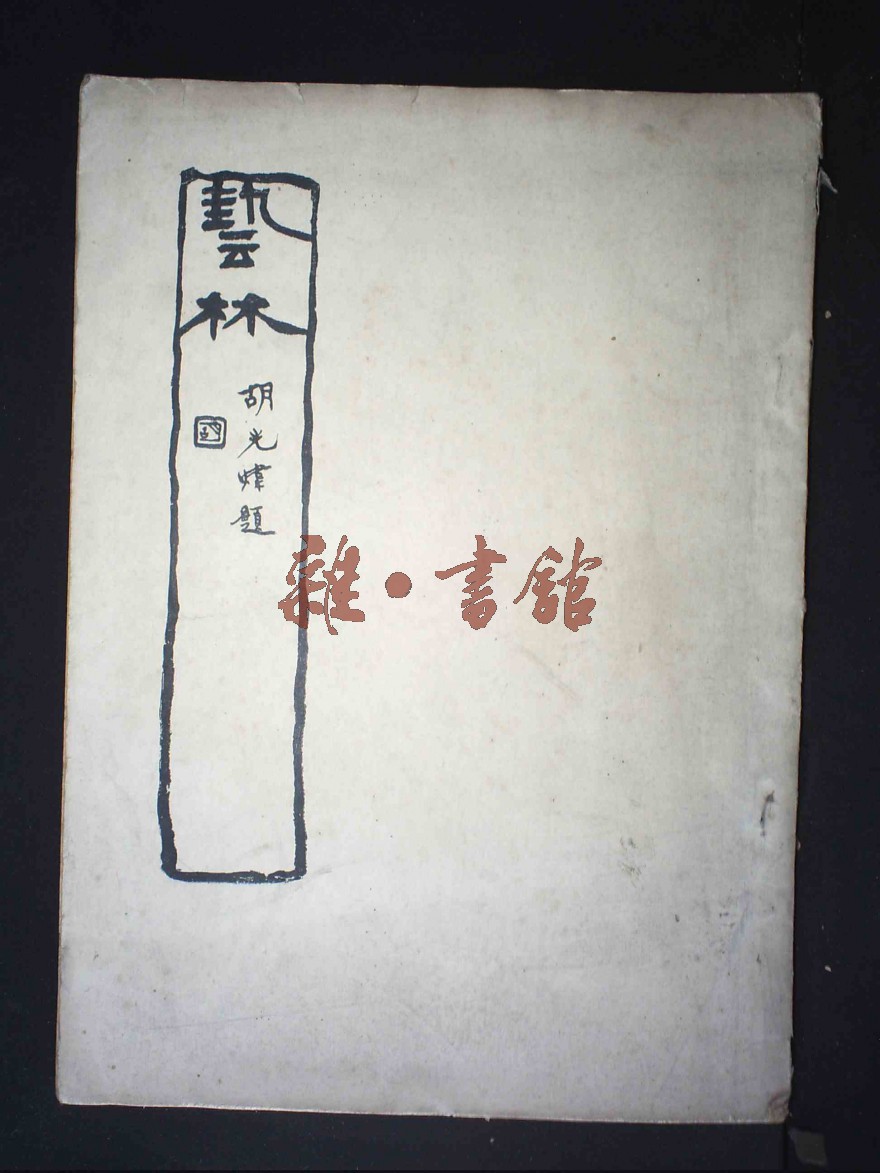 藝林
胡光煒題
雜·書館